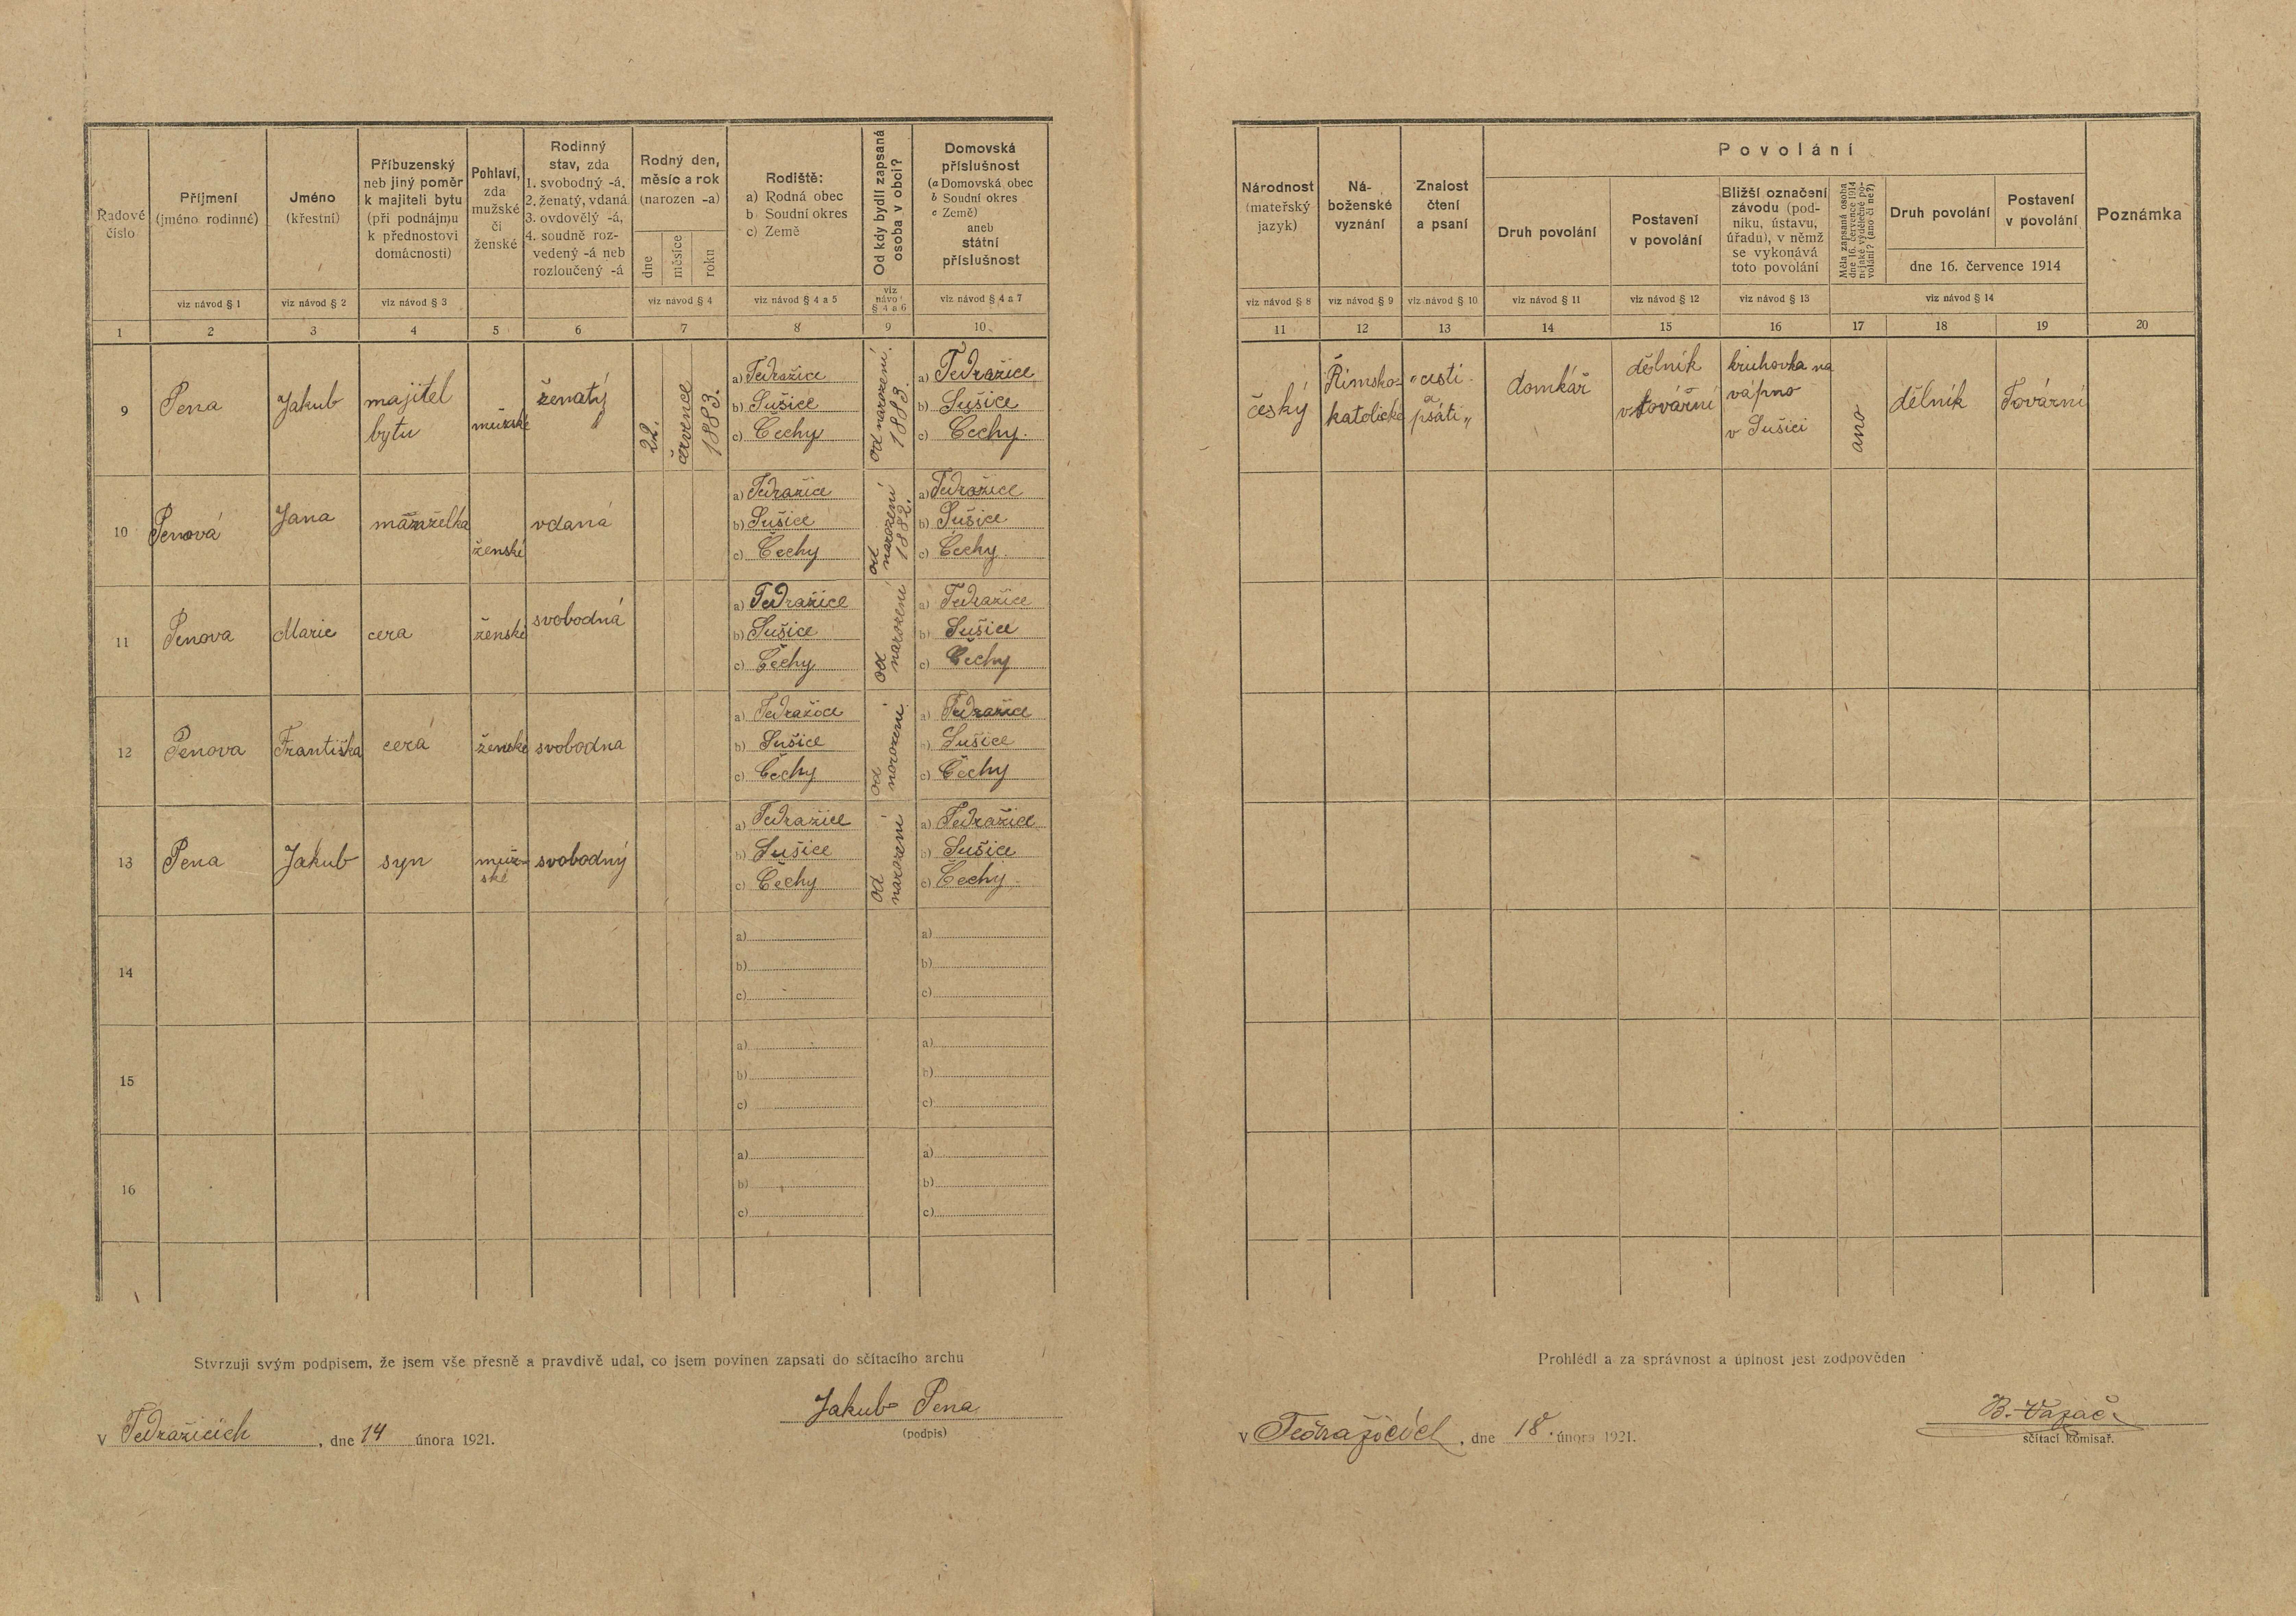 Řadové
číslo
1
Příjmení
(jméno rodinné)
viz návod § 1
2
Jméno
(křestní)
viz návod § 2
3
Příbuzenský
neb jiný poměr
k majiteli bytu
(při podnájmu
k přednostovi
domácnosti)
viz návod § 3
4
Pohlaví,
zda
mužské
či
ženské
5
Rodinný
stav, zda
1. svobodný -á,
2. ženatý, vdaná
3. ovdovělý -á,
4. soudně roz-
vedený -á neb
rozloučený -á
6
Rodný den,
měsíc a rok
(narozen -a)
dne
měsíce
roku
viz návod § 4
7
Rodiště:
a) Rodná obec
b) Soudní okres
c) Země
viz návod § 4 a 5
8
Od kdy bydlí zapsaná
osoba v obci?
viz
návod
§ 4 a 6
9
Domovská
příslušnost
(a Domovská obec
b Soudní okres
c Země)
aneb
státní
příslušnost
viz návod § 4 a 7
10
Národnost
(mateřský
jazyk)
viz návod § 8
11
Ná-
boženské
vyznání
viz návod § 9
12
Znalost
čtení
a psaní
viz návod § 10
13
Povolání
Druh povolání
viz návod § 11
14
Postavení
v povolání
viz návod § 12
15
Bližší označení
závodu (pod-
niku, ústavu,
úřadu), v němž
se vykonává
toto povolání
viz návod § 13
16
Měla zapsaná osoba
dne 16. července 1914
nějaké výdělečné po-
volání? (ano či ne?)
17
Druh povolání
18
Postavení
v povolání
19
dne 16. července 1914
viz návod § 14
Poznámka
20
9
Pena
Jakub
majitel
bytu
mužské
ženatý
22.
července
1883.
a) Tedražice
b) Sušice
c) Čechy
od narození
1883.
a) Tedražice
b) Sušice
c) Čechy.
český
Římsko-
katolické
čísti
a
psáti
domkář
dělník
v továrni
kruhovka na
vápno
v Sušici
ano
dělník
Tovární
10
Penová
Jana
manželka
ženské
vdaná
a) Tedražice
b) Sušice
c) Čechy
od
narození
1882.
a) Tedražice
b) Sušice
c) Čechy
11
Penova
Marie
cera
ženské
svobodná
a) Tedražice
b) Sušice
c) Čechy
od
narození
a) Tedražice
b) Sušice
c) Čechy
12
Penova
Františka
cerá
ženské
svobodna
a) Tedražice
b) Sušice
c) Čechy
od
narození
a) Tedražice
b) Sušice
c) Čechy
13
Pena
Jakub
syn
muž-
ské
svobodný
a) Tedražice
b) Sušice
c) Čechy
od
narození
a) Tedražice
b) Sušice
c) Čechy
14
a)
b)
c)
a)
b)
c)
15
a)
b)
c)
a)
b)
c)
16
a)
b)
c)
a)
b)
c)
Stvrzuji svým podpisem, že jsem vše přesně a pravdivě udal, co jsem povinen zapsati do sčítacího archu
Jakub Pena
(podpis)
v Tedražicích, dne 14 února 1921.
Prohlédl a za správnost a úplnost jest zodpověden
v Tedražicích, dne 18. února 1921.
B.
sčítací komisař.